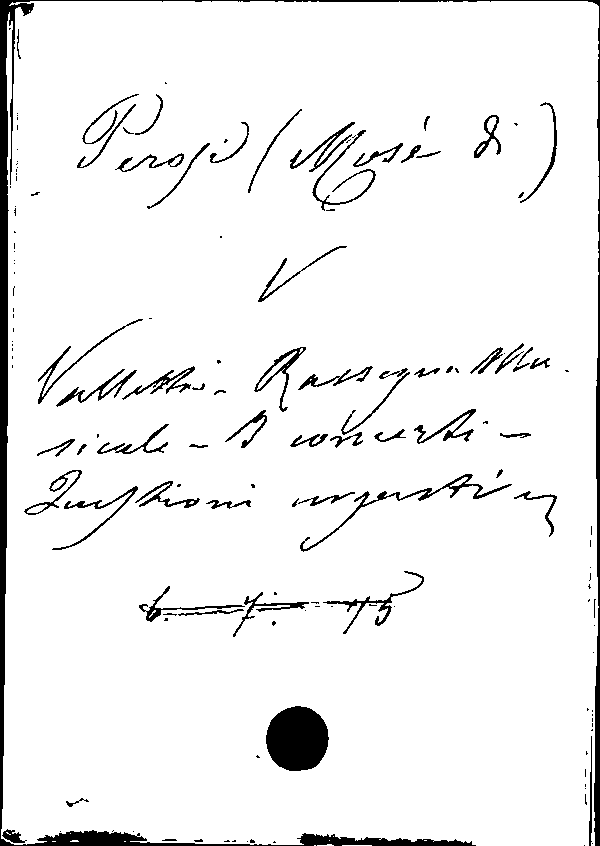 Perosi (Mosé di)
V
Valletta - Rassegna Mu-
sicale - I concerti -
Questioni urgenti
6. 7. 15